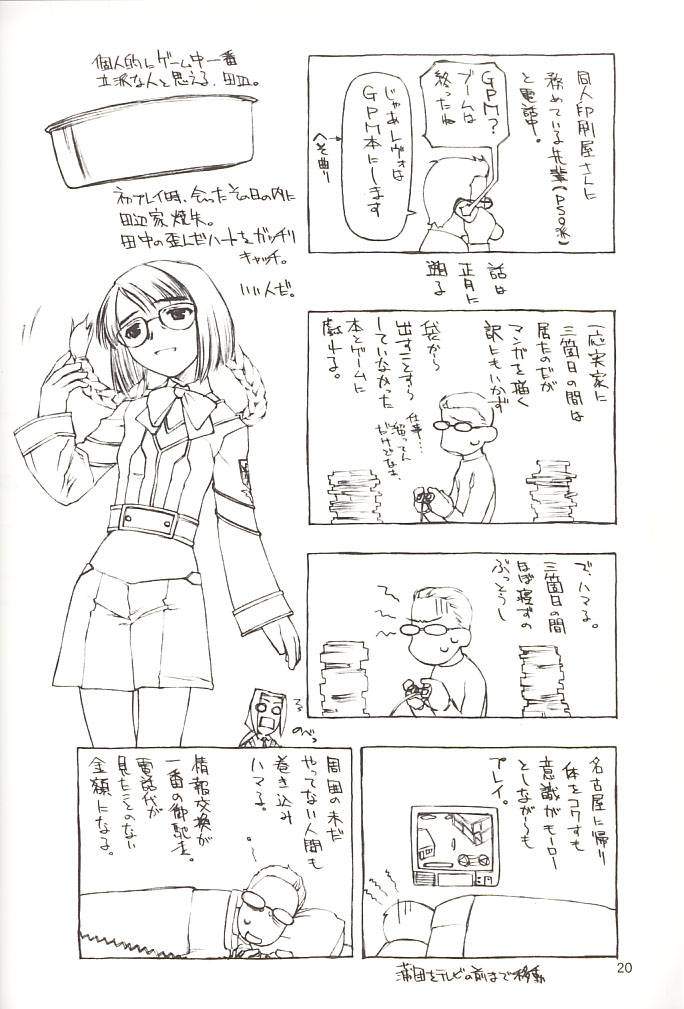 同人印刷屋さんに
務めている先輩(PSO派)
と電話中。
GPM?
ブームは
終ったね
じゃあレヴォは
GPM本にします
へそ曲り
話は
正月に
遡る
一応実家に
三箇日の間は
居たのだが
マンガを描く
訳にもいかず
袋から
出すことすら
していなかった
本とゲームに
戯れる。
仕事…
溜ってん
だけどなぁ
で、ハマる。
三箇日の間
ほぼ寝ずの
ぶっとうし
名古屋に帰り
体をコワすも
意識がモーロー
としながらも
プレイ。
蒲団をテレビの前まで移動
周囲の未だ
やってない人間も
巻き込み
ハマる。
情報交換が
一番の御馳走。
電話代が
見たことのない
金額になる。
個人的にゲーム中一番
立派な人と思える、田辺。
初プレイ時、会ったその日の内に
田辺家焼失。
田中の歪んだハートをガッチリ
キャッチ。
いい人だ。
のべっ
20